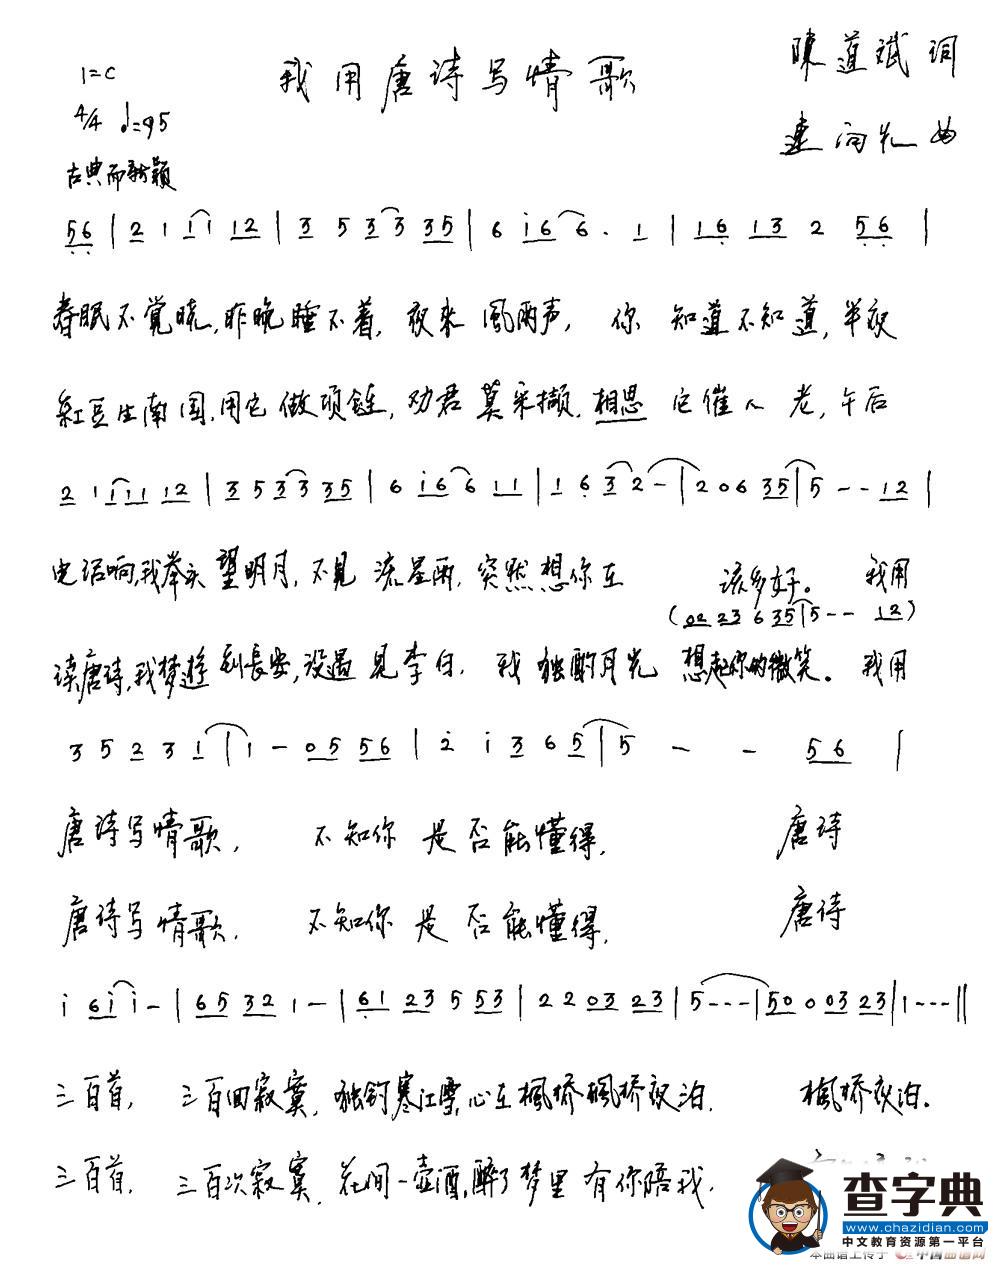 我用唐诗写情歌
陳道斌 词
1=C
4/4 ♩=95
曲
古典而新颖
56 | 2 1 11 12 | 3 5 33 35 | 6 i6 6. 1 | 16 13 2 56 |
春眠不觉晓,昨晚睡不着,夜来風雨声,你知道不知道,半夜
紅豆生南国,用它做项链,劝君莫采撷,相思它催人老,午后
2 1 111 12 | 3 5 33 35 | 6 i6 6 11 | 1 6 3 2 - | 2 0 6 35 | 5 - - 12 |
电话响,我举头望明月,不見流星雨,突然想你在该多好。我用
(02 23 6 35 | 5 - - 12)
读唐诗,我梦遊到長安,没遇見李白,我独酌月光想起你的微笑。我用
3 5 2 3 1 | 1 - 05 56 | 2 i 3 6 5 | 5 - - 56 |
唐诗写情歌,不知你是否能懂得,唐诗
唐诗写情歌,不知你是否能懂得,唐诗
i 6i i - | 65 32 1 - | 61 23 5 53 | 2 2 03 23 | 5 - - - | 50 0 03 23 | 1 - - - ||
三百首,三百回寂寞,独钓寒江雪,心在楓桥楓桥夜泊,楓桥夜泊。
三百首,三百次寂寞,花间一壶酒,醉了梦里有你陪我,
查字典
www.chazidian.com
中文教育资源第一平台
本曲谱上传于 中国曲谱网